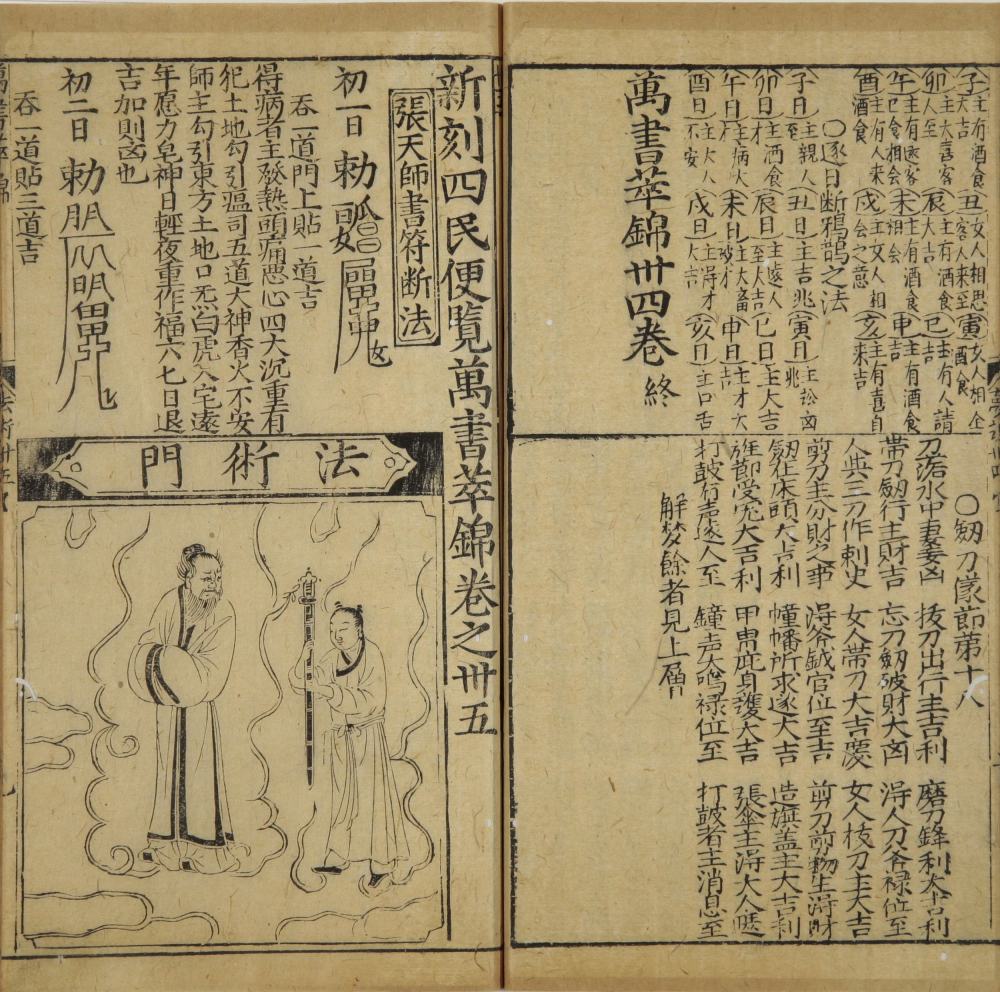 子日主有酒食大吉
丑女人相思客人来至
寅女人相企酒食
卯主大喜客人至
辰主有酒食大吉
巳主有人請吉
午主有遠客巳食相会
未主有酒食相会
申主有酒食吉
酉主有人来酒食
戌主女人相会之意
亥主有喜自来吉
○逐日断鴉鵲之法
子日主親人至
丑日主吉兆
寅日主訟凶兆
卯日主酒食才
辰日主遠人至大吉
巳日主大吉
午日主病大
未日主大畜被才
申日主才大吉
酉日主大人不安
戌日主得才大吉
亥日主口舌
萬書萃錦卅四卷 終
○劔刀 節第十八
刀落水中妻妾凶 拔刀出行主吉利 磨刀鋒利大吉利
帶刀劔行主財吉 忘刀劔破財大凶 淂人刀斧禄位至
人與三刀作刺史 女人帶刀大吉慶 女人枝刀主大吉
剪刀主分財之事 淂斧鉞官位至吉 剪刀剪物生淂財
劔在床頭大吉利 幢幡所求遂大吉 造 盖主大吉利
旌節受寵大吉利 甲冑庇身䕶大吉 張傘主淂大人庭
打皷有声遠人至 鐘声大鳴禄位至 打皷者主消息至
解梦餘者見上層
新刻四民便覽萬書萃錦卷之卅五
張天師書符断法
初一日 勅
吞一道門上貼一道吉
得病者主發熱頭痛悪心四大沉重有
犯土地勾引瘟司五道大神香火不安
師主勾引東方土地口旡白虎入宅遠
年愿力皂神日輕夜重作福六七日退
吉加則凶也
初二日 勅
吞一道貼三道吉
法術門